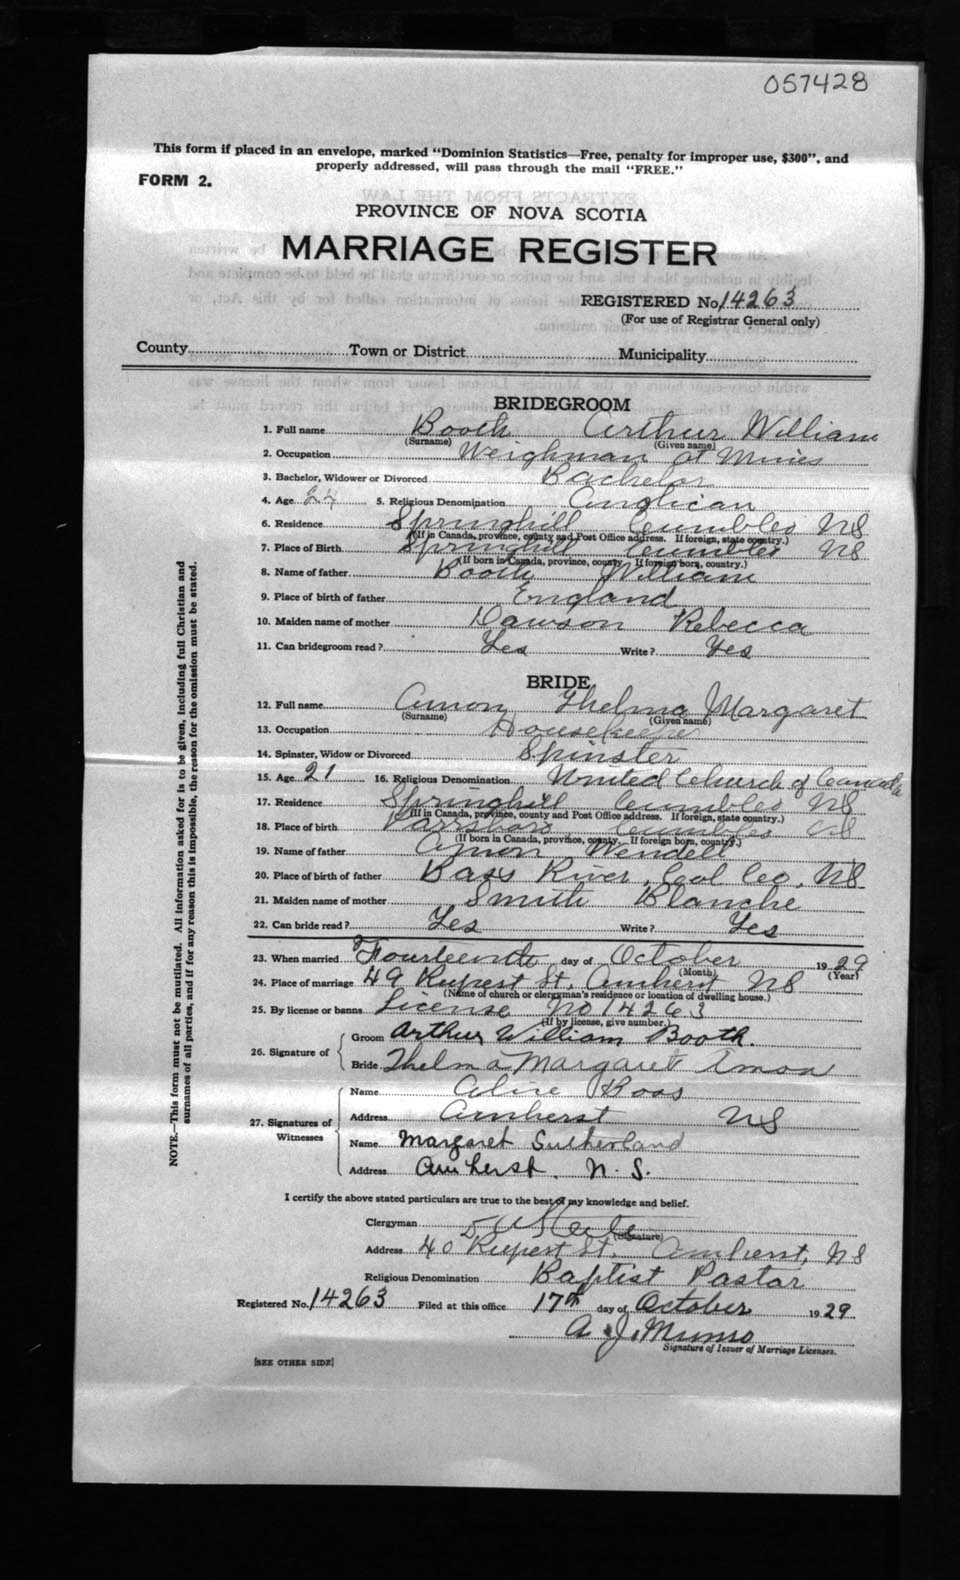 057428
This form if placed in an envelope, marked "Dominion Statistics—Free, penalty for improper use, $300", and
properly addressed, will pass through the mail "FREE."
FORM 2.
PROVINCE OF NOVA SCOTIA
MARRIAGE REGISTER
REGISTERED No. 14263
(For use of Registrar General only)
County Town or District Municipality
BRIDEGROOM
1. Full name Booth Arthur William
(Surname) (Given name)
2. Occupation Weighman at Mines
3. Bachelor, Widower or Divorced Bachelor
4. Age 24 5. Religious Denomination Anglican
6. Residence Springhill Cumb Co NS
(If in Canada, province, county and Post Office address. If foreign, state country.)
7. Place of Birth Springhill Cumb Co NS
(If born in Canada, province, county. If foreign born, country.)
8. Name of father Booth William
9. Place of birth of father England
10. Maiden name of mother Dawson Rebecca
11. Can bridegroom read? Yes Write? Yes
BRIDE
12. Full name Amon Thelma Margaret
(Surname) (Given name)
13. Occupation Housekeeper
14. Spinster, Widow or Divorced Spinster
15. Age 21 16. Religious Denomination United Church of Canada
17. Residence Springhill Cumb Co NS
(If in Canada, province, county and Post Office address. If foreign, state country.)
18. Place of birth Parrsboro Cumb Co NS
(If born in Canada, province, county. If foreign born, country.)
19. Name of father Amon Wendell
20. Place of birth of father Bass River, Col Co, NS
21. Maiden name of mother Smith Blanche
22. Can bride read? Yes Write? Yes
23. When married Fourteenth day of October 1929
(Month) (Year)
24. Place of marriage 49 Rupert St, Amherst NS
(Name of church or clergyman's residence or location of dwelling house.)
25. By license or banns License No 14263
(If by license, give number.)
26. Signature of
Groom Arthur William Booth.
Bride Thelma Margaret Amon
27. Signatures of Witnesses
Name Ross
Address Amherst NS
Name Margaret Sutherland
Address Amherst. N. S.
I certify the above stated particulars are true to the best of my knowledge and belief.
Clergyman
(Signature)
Address 40 Rupert St. Amherst, NS
Religious Denomination Baptist Pastor
Registered No. 14263 Filed at this office 17th day of October 1929
A. J. Munro
Signature of Issuer of Marriage Licenses.
[SEE OTHER SIDE]
NOTE.—This form must not be mutilated. All information asked for is to be given, including full Christian and
surnames of all parties, and if for any reason this is impossible, the reason for the omission must be stated.